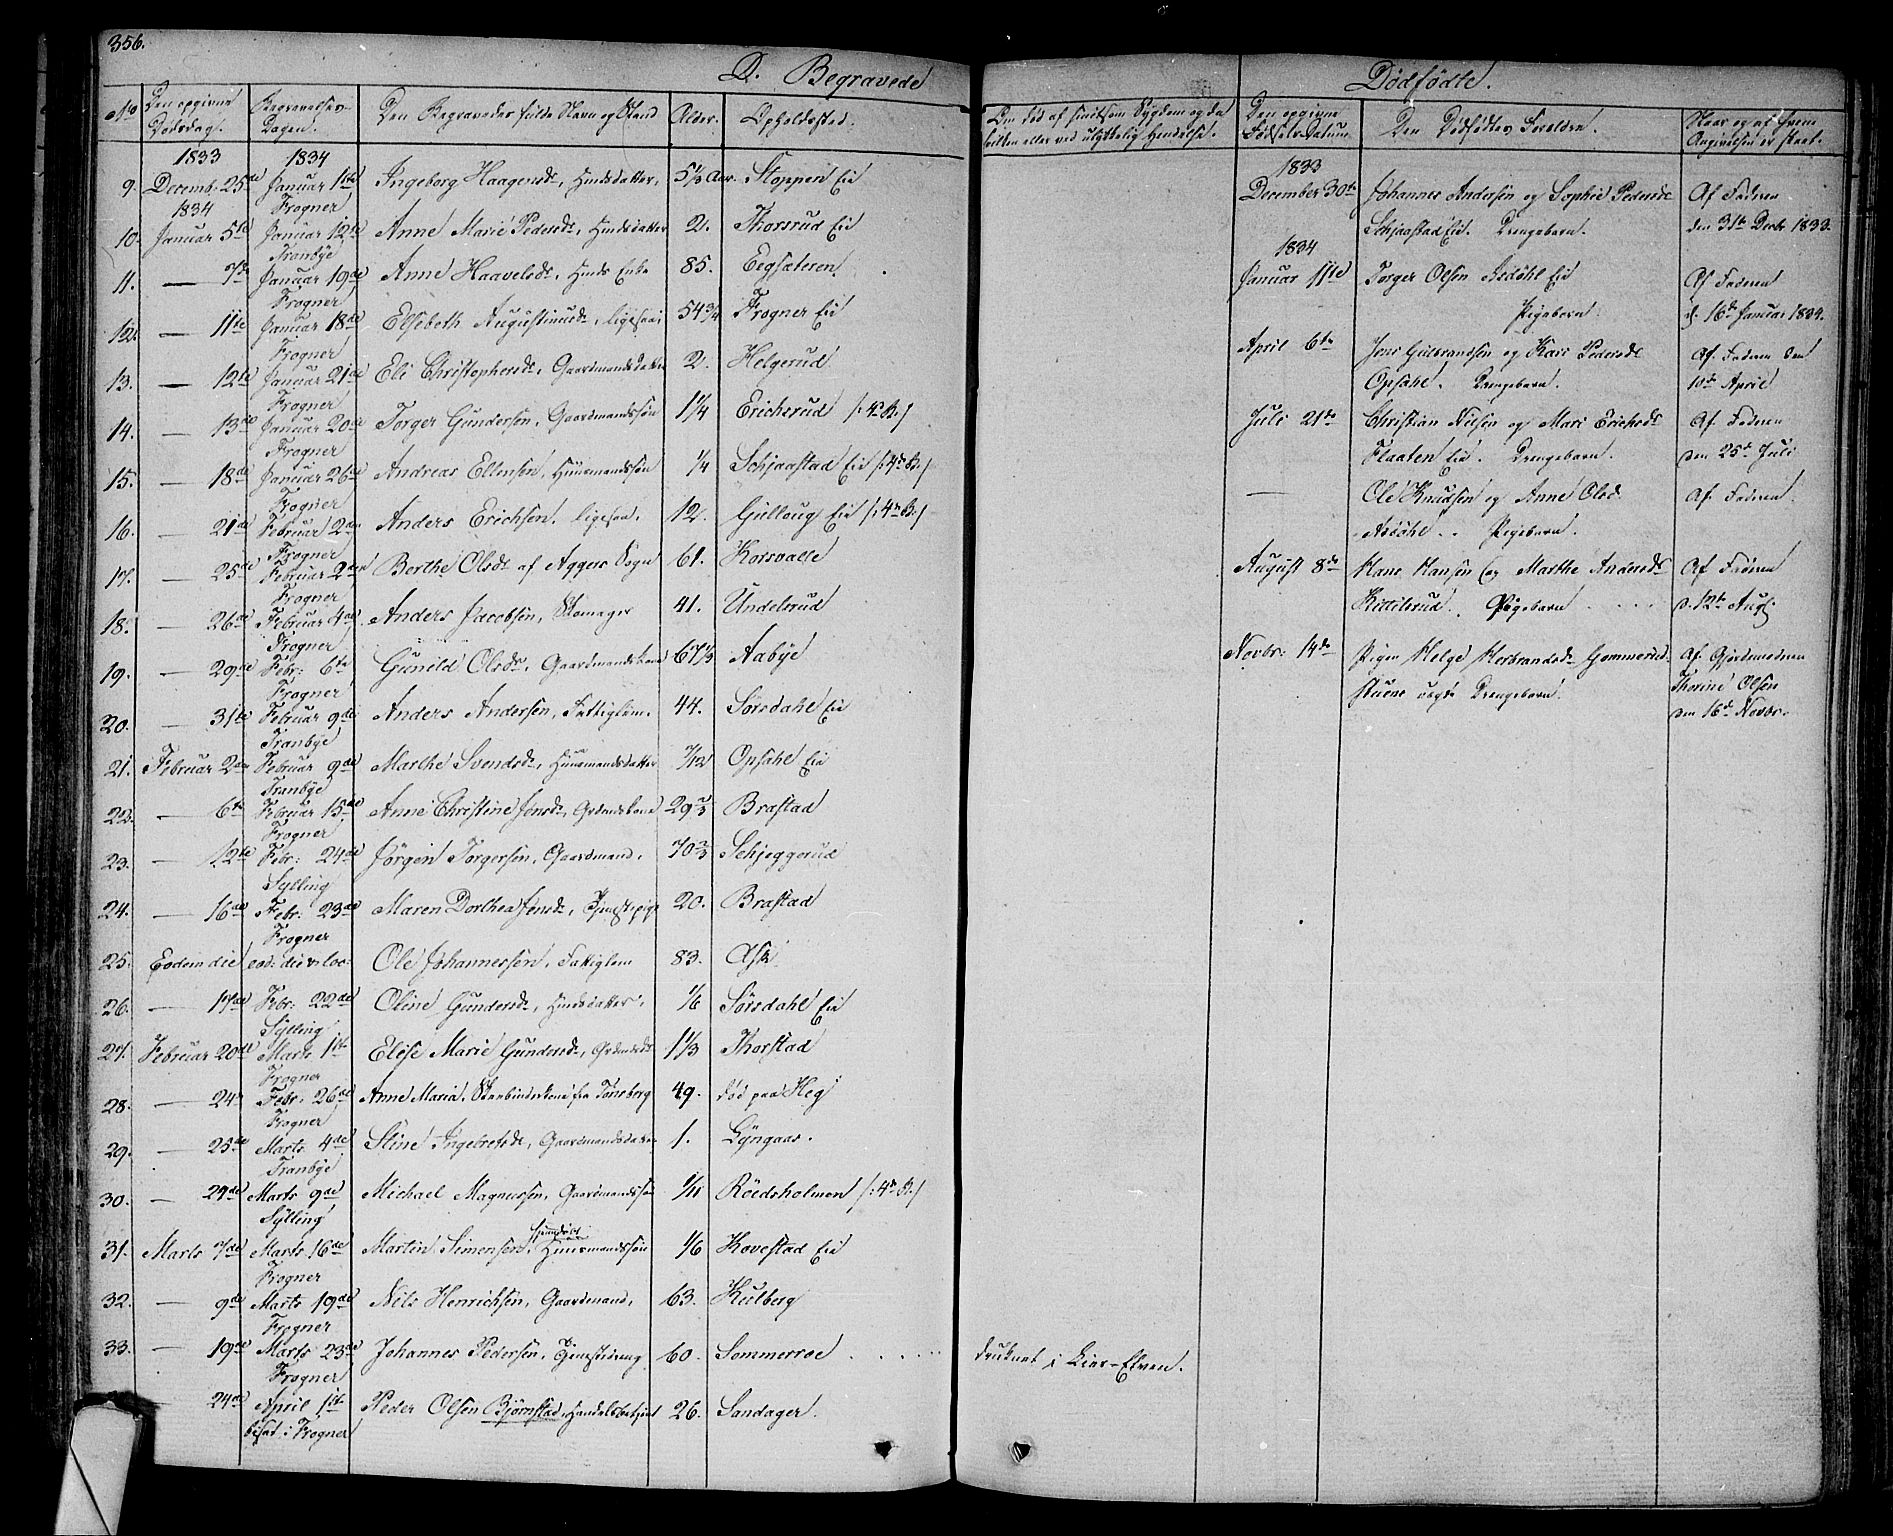 356.
D. Begravede
No
Den opgivne Dødsdag.
Begravelses-Dagen.
Den Begravedes fulde Navn og Stand
Alder.
Opholdssted.
1833 1834
9. Decemb. 25de Januar 1ste Ingeborg Haagensdr, Huusdatter, 5 1/3 Aar. Stoppen Eie
1834 Frogner
10. Januar 5te Januar 12te Anne Marie Pedersdr, Huusdatter 2. Thorsrud Eie
Tranbÿe
11. — 7de Januar 19de Anne Haavelsdr, Huus Enke 85. Eegsæteren
Frogner
12. — 11te Januar 18de Elsebeth Augustinusdr, ligesaa 54 3/4 Frogner Eie
Frogner
13. — 12te Januar 21de Eli Christophersdr, Gaardmandsdatter 2. Helgerud
Frogner
14. — 13de Januar 20de Torger Gundersen, Gaardmandssøn 1 1/4 Ericksrud /: 4de B. /
Frogner
15. — 18de Januar 26de Andreas Ellensen, Huusmandssøn 1/4 Schjaastad Eie /: 4de B. /
Frogner
16. — 21de Februar 2den Anders Erichsen, ligesaa, 12. Gulloug Eie /: 4de B. /
Frogner
17. — 25de Februar 2den Berthe Olsdr af Aggers Sogn 61. Korsvalle
Frogner
18. — 26de Februar 4de Anders Jacobsen, Skomager 41. Undelsrud
Frogner
19. — 29de Febr: 6te Gunild Olsdr, Gaardmandskone 67 1/3 Aabÿe
Frogner
20. — 31te Februar 9de Anders Andersen, Fattiglem. 44. Sørsdahl Eie
Tranbÿe
21. Februar 2den Februar 9de Marthe Svendsdr, Huusmandsdatter 7/12 Opsahl Eie
Tranbÿe
22. — 6te Februar 15de Anne Christine Jensdr, Grdmandskone 29 2/3 Brastad
Frogner
23. — 12te Febr: 24de Jørgen Torgersen, Gaardmand, 70 2/3 Schjeggerud
Sÿlling
24. — 16de Febr: 23de Maren Dorthea Jensdr, Tjenestepige 20. Brastad
Frogner
25. Eodem die eod: die & loc: Ole Johannessen, Fattiglem 83. Ask
26. — 17de Febr: 22de Oline Gundersdr, Huusdatter, 1/6 Sørsdahl Eie
Sÿlling
27. Februar 20de Marts 1ste Elise Marie Gundersdr, Grdmandsdr 1 1/3 Thorstad
Frogner
28. — 24de Febr. 26de Anne Maria, Skarbinderkone fra Tønsberg 49. død paa Heg
Frogner
29. — 25de Marts 4de Stine Ingebretsdr, Gaardmandsdatter 1. Lÿngaas.
Tranbÿe
30. — 24de Marts 9de Michael Magnussen, Gaardmandssøn 1/11 Röedsholmen /: 4de B. /
Sÿlling
31. Marts 7de Marts 16de Martin Simensen, Huusmandssøn 1/6 Kovestad Eie
Frogner
32. — 9de Marts 19de Nils Henrichsen, Gaardmand, 63. Kulberg
Frogner
33. — 19de Marts 23de Johannes Pedersen, Tjenestedreng 60. Sommerroe . . . . druknet i Lier-Elven.
Frogner
24de April 1ste Peder Olsen Bjørnstad, Handelsbetjent 26. Sandager.
bisat i Frogner
Om død af smitsom Sÿgdom og da hvilken eller ved ulykkelig Hændelse.
Dødfødte.
Den opgivne Fødsels-Datum
Den Dødfødtes Forældre.
Naar og af hvem Angivelsen er skeet.
1833
December 30te Johannes Andersen og Sophie Pedersdr Af Faderen
Schjaastad Eie. Drengebarn. den 31te Decbr 1833.
1834
Januar 11te Torger Olsen Asdöhl Eie Af Faderen
Pigebarn d. 16de Januar 1834.
April 6te Jens Gulbrandsen og Kari Pedersdr Af Faderen den
Opsahl. Drengebarn. 10de April
Juli 21de Christian Nielsen og Mari Erichsdr Af Faderen
Flaaten Eie. Drengebarn. den 25de Juli
— Ole Knudsen og Anne Olsd. Af Faderen.
Asdöhl. Pigebarn.
August 8de Hans Hansen og Marthe Andersdr Af Faderen
Kittilsrud. Pigebarn . . . . d. 12te Aug:
Novbr: 14de Pigen Helge Herbrandsdr Gommerud- Af Gjordemoderen
stuene uægte Drengebarn. Thorine Olsen
den 16de Novbr.